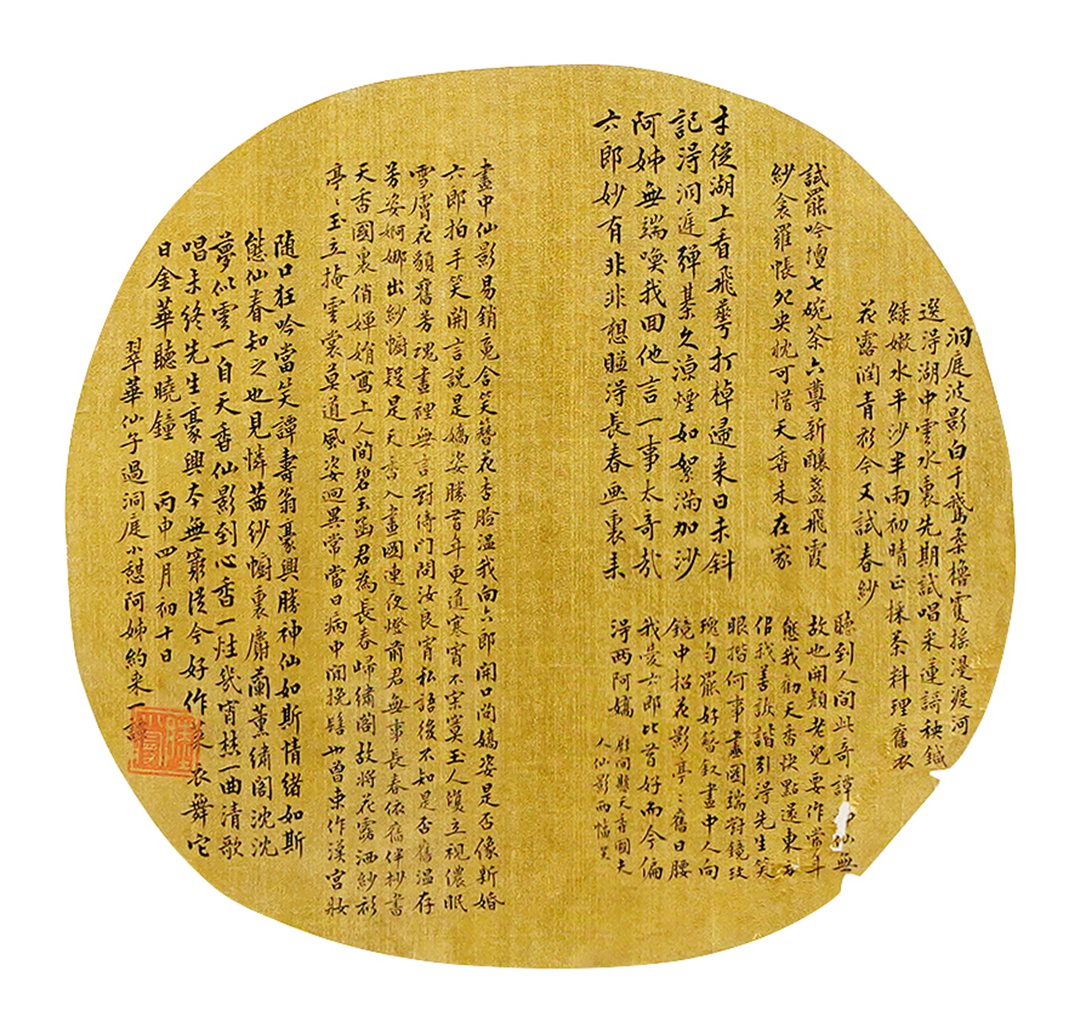 洞庭波影白于鵝桑櫓賣搖漫渡河
選得湖中雲水裏先期試唱采蓮謌秧鍼
綠嫩水平沙半雨初晴正採茶料理舊衣
花露潤青衫今又試春紗
試罷吟壇七碗茶六尊新釀盞飛霞
紗衾羅帳夗央枕可惜天香未在家
才從湖上看飛蕚打棹還來日未斜
記淂洞庭彈棊久涼煙如絮滿加沙
阿姊無端喚我回他言一事太奇哉
六郎妙有非非想賺淂長春画裏來
聽到人間此奇譚 仙無
故也開顏老兒要作常年
態我勸天香快點還東方
侶我善詼諧引淂先生笑
眼揩何事畫圖端對鏡玫
瑰勻罷好簪釵畫中人向
鏡中招花影亭〻舊日腰
我愛六郎比昔好而今偏
淂兩阿嬌 壁間懸天香國夫
人仙影兩幅矣
畫中仙影易銷竟含笑簪花杏臉溫我向六郎開口問嬌姿是否像新婚
六郎拍手笑開言說是嬌姿勝昔年更道寒宵不寂寞玉人復立視儂眠
雪膚花貌舊芳魂畫裡無言對倚門問汝良宵私語後不知是否舊溫存
芳姿婀娜出紗幮疑是天香入畫圖連夜燈前君無事長春依舊伴抄書
天香國裏俏嬋娟寫上人間碧玉函君為長春歸繡閣故將花露洒紗衫
亭〻玉立掩雲裳莫道風姿迥異常當日病中閒挽髻也曾東作漢宮妝
隨口狂吟當笑譚壽翁豪興勝神仙如斯情緒如斯
態仙春知之也見憐茜紗幮裏麝蘭薰繡閣沈沈
夢似雲一自天香仙影到心香一炷幾宵焚一曲清歌
唱未終先生豪興本無窮從今好作 衣舞它
日金華聽曉鐘 丙申四月初十日
翠華仙子過洞庭小憩阿姊約來一譚